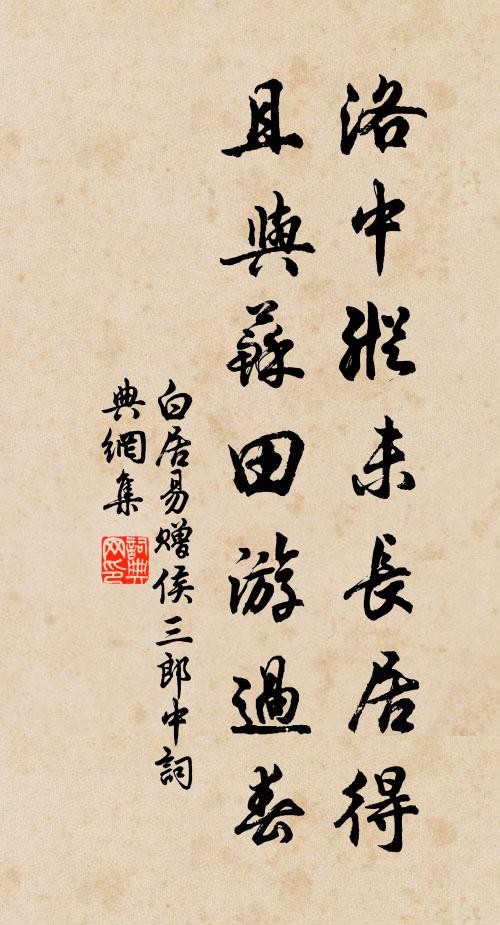 洛中縱未長居得
且與蘇田游過春
白居易贈侯三郎中詞
典網集
詞典网印